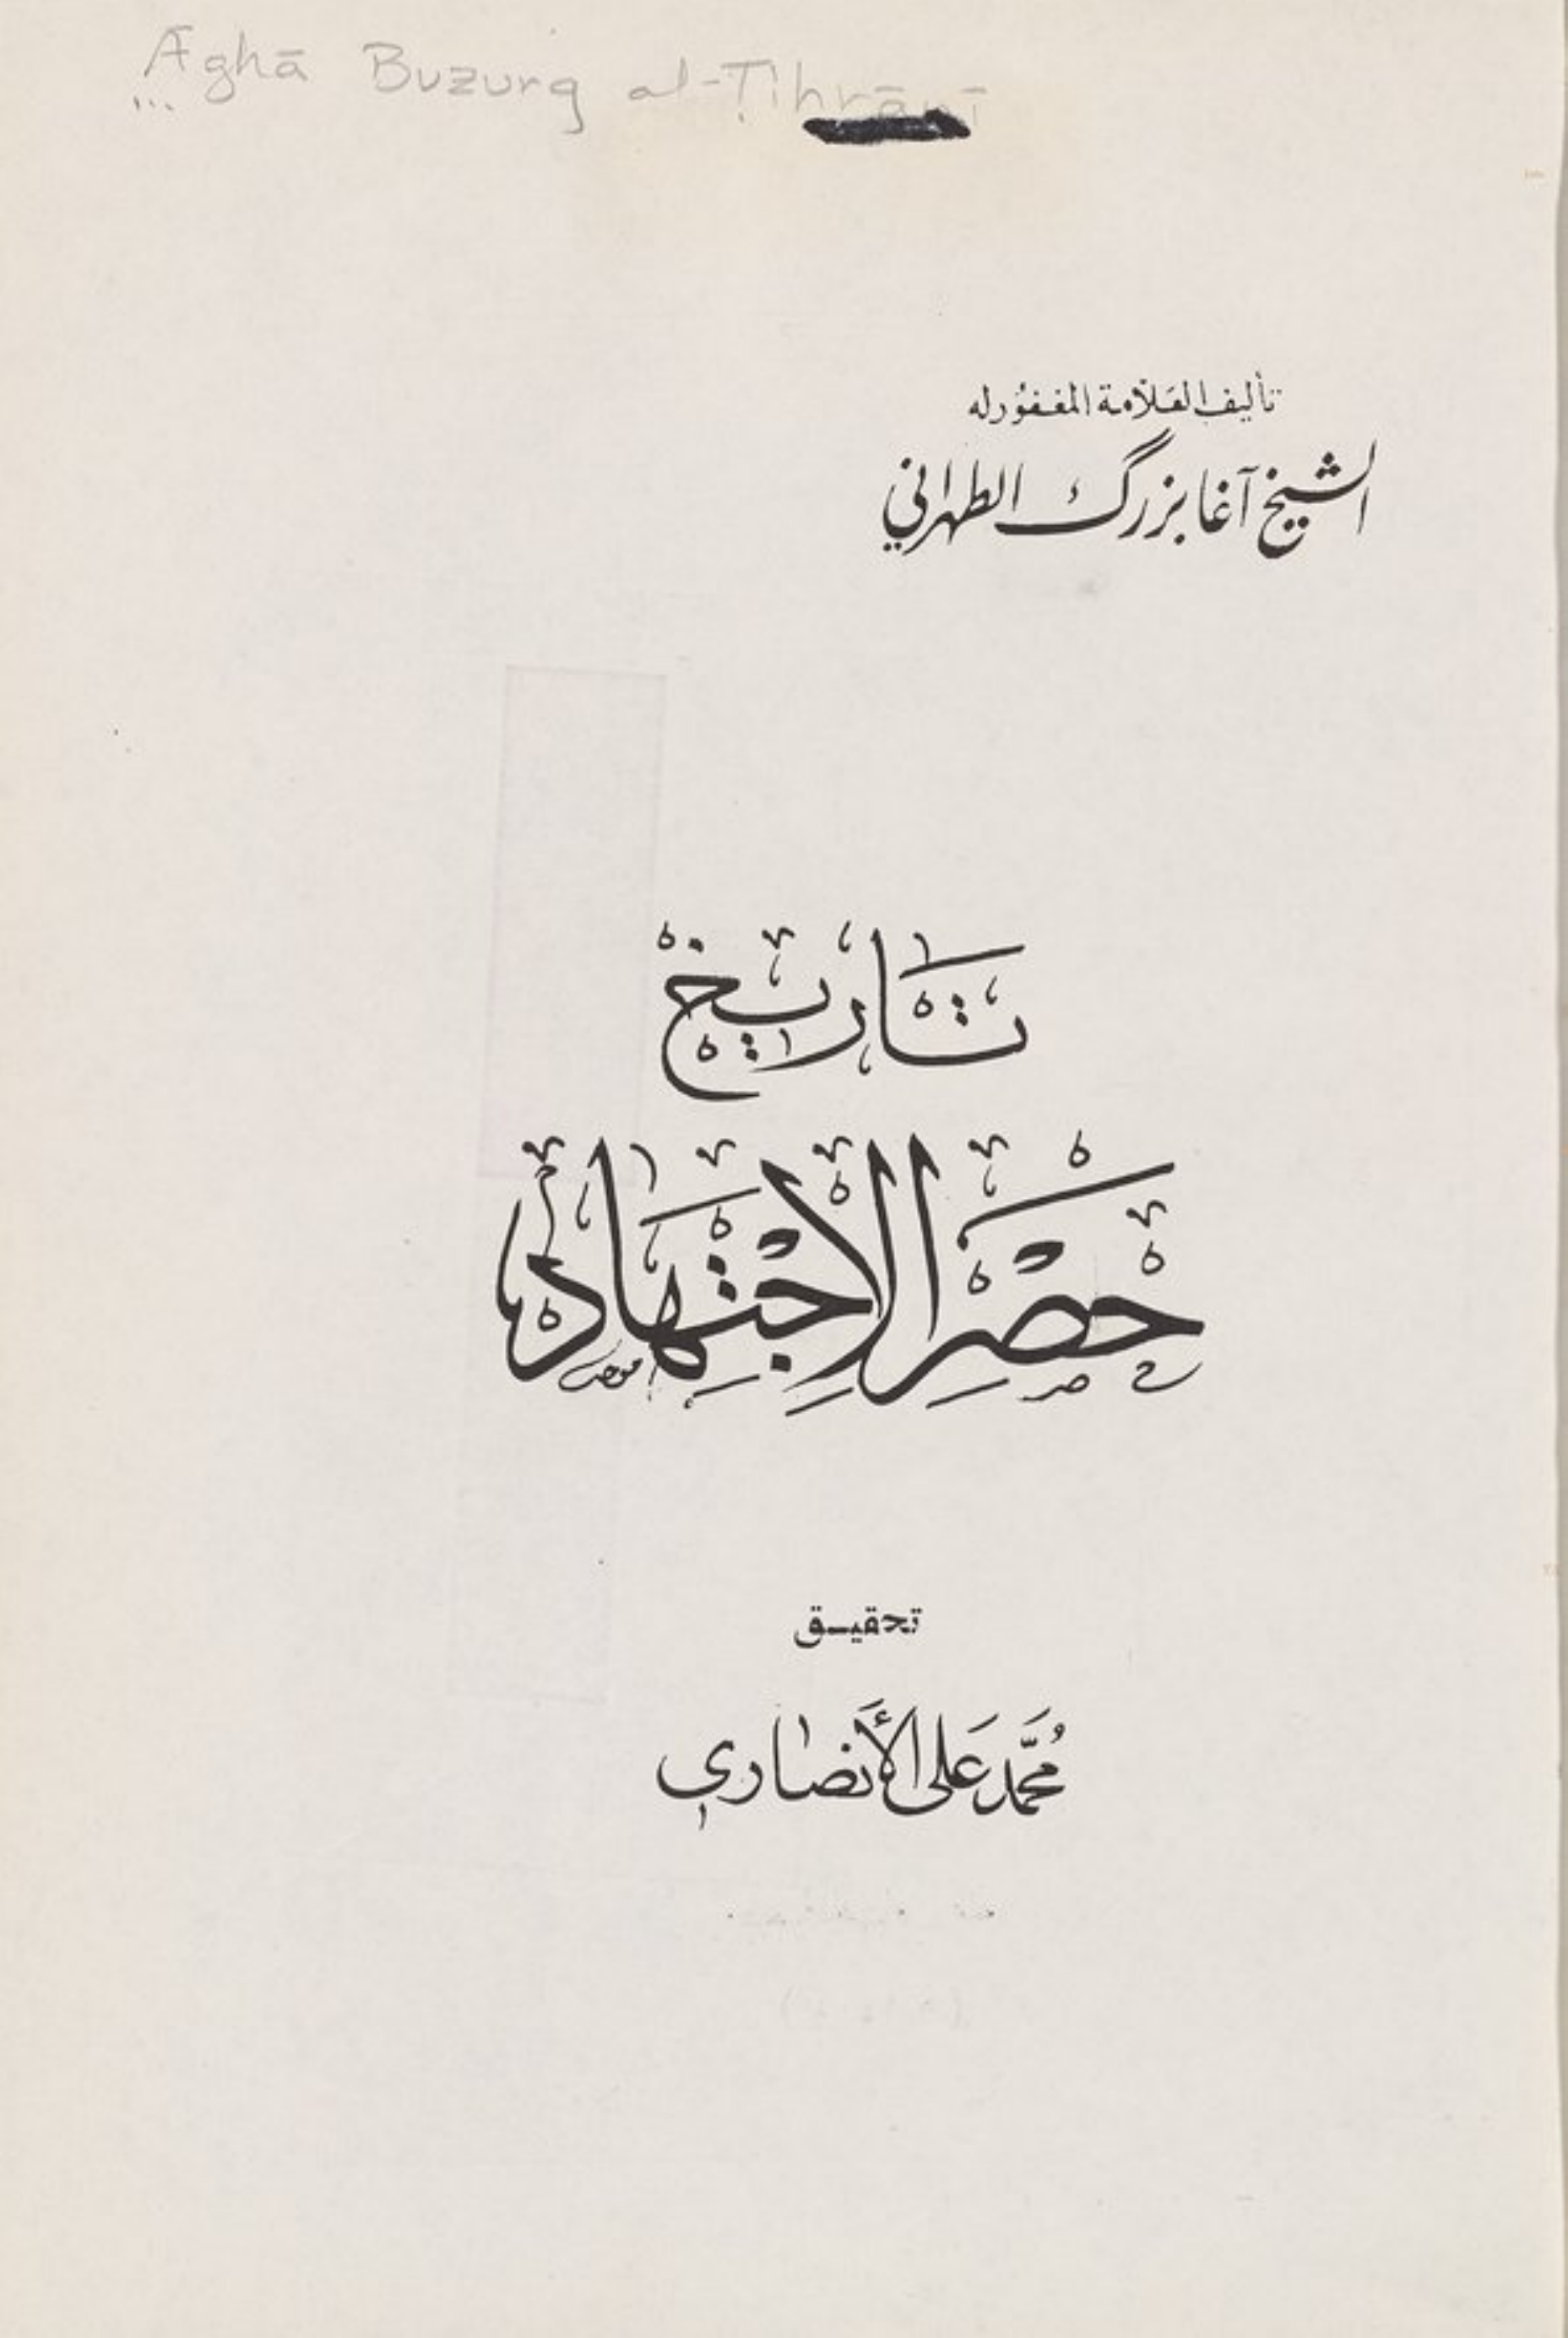 Āghā Buzurg al-Ṭihrānī
تأليف العلّامة المغفور له
الشيخ آغا بزرگ الطهراني
تاريخ
حصر الاجتهاد
تحقيق
محمد علي الأنصاري